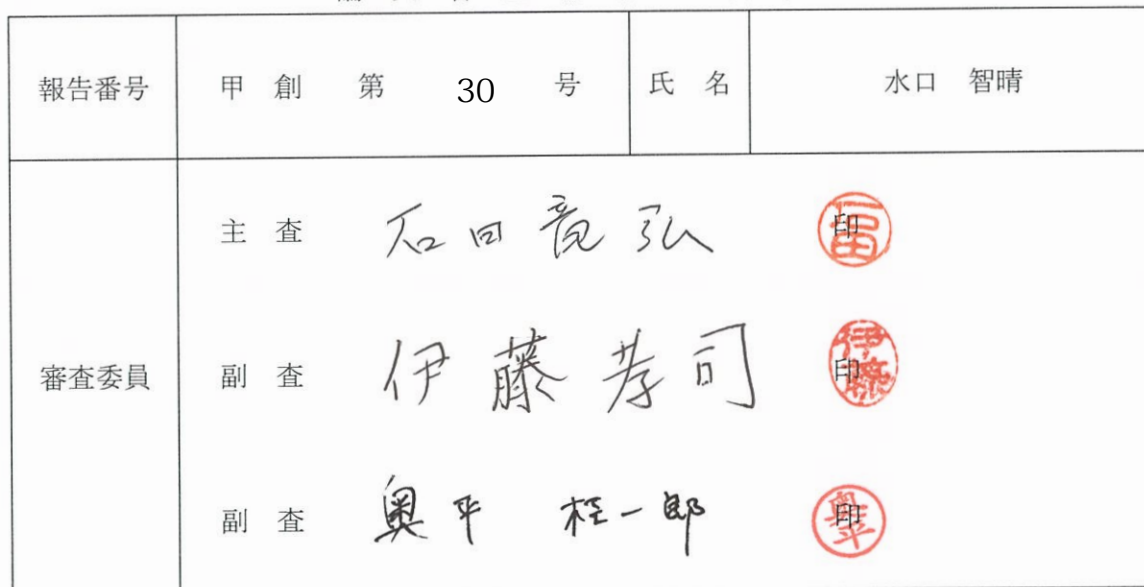 報告番号 甲 創 第 30 号 氏 名 水口 智晴
審査委員
主 査 石田竜弘 印
副 査 伊藤孝司 印
副 査 奥平 桂一郎 印